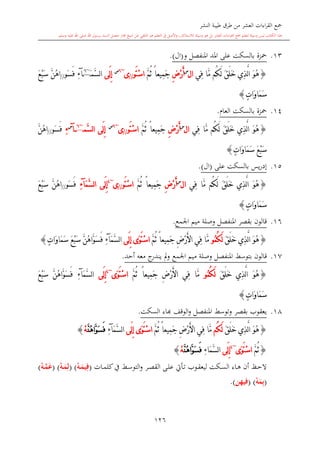 جمع القراءات العشر من طرق طيبة النشر
١٣. حمزة بالسكت على المد المنفصل و(ال).
﴿ هُوَ الَّذِي خَلَقَ لَكُم مَّا فِي الْأَرْضِ جَمِيعاً ثُمَّ اسْتَوَى إِلَى السَّمَاءِ فَسَوَّاهُنَّ سَبْعَ
سَمَاوَاتٍ ﴾
١٤. حمزة بالسكت العام.
﴿ هُوَ الَّذِي خَلَقَ لَكُم مَّا فِي الْأَرْضِ جَمِيعاً ثُمَّ اسْتَوَى إِلَى السَّمَاءِ فَسَوَّاهُنَّ
سَبْعَ سَمَاوَاتٍ ﴾
١٥. إدريس بالسكت على (ال).
﴿ هُوَ الَّذِي خَلَقَ لَكُم مَّا فِي الْأَرْضِ جَمِيعاً ثُمَّ اسْتَوَى إِلَى السَّمَاءِ فَسَوَّاهُنَّ سَبْعَ
سَمَاوَاتٍ ﴾
١٦. قالون بقصر المنفصل وصلة ميم الجمع.
﴿ هُوَ الَّذِي خَلَقَ لَكُمُو مَّا فِي الْأَرْضِ جَمِيعاً ثُمَّ اسْتَوَى إِلَى السَّمَاءِ فَسَوَّاهُنَّ سَبْعَ سَمَاوَاتٍ ﴾
١٧. قالون بتوسط المنفصل وصلة ميم الجمع ولم يندرج معه أحد.
﴿ هُوَ الَّذِي خَلَقَ لَكُمُو مَّا فِي الْأَرْضِ جَمِيعاً ثُمَّ اسْتَوَى إِلَى السَّمَاءِ فَسَوَّاهُنَّ سَبْعَ
سَمَاوَاتٍ ﴾
١٨. يعقوب بقصر وتوسط المنفصل والوقف بهاء السكت.
﴿ هُوَ الَّذِي خَلَقَ لَكُم مَّا فِي الْأَرْضِ جَمِيعاً ثُمَّ اسْتَوَى إِلَى السَّمَاءِ فَسَوَّاهُنَّهْ ﴾
﴿ ثُمَّ اسْتَوَى إِلَى السَّمَاءِ فَسَوَّاهُنَّهْ ﴾
لاحظ أن هاء السكت ليعقوب تأتي على القصر والتوسط في كلمات (فِيمَهْ) (لِمَهْ) (عَمَّهْ)
(بِمَهْ) (فيهن).
١٢٦